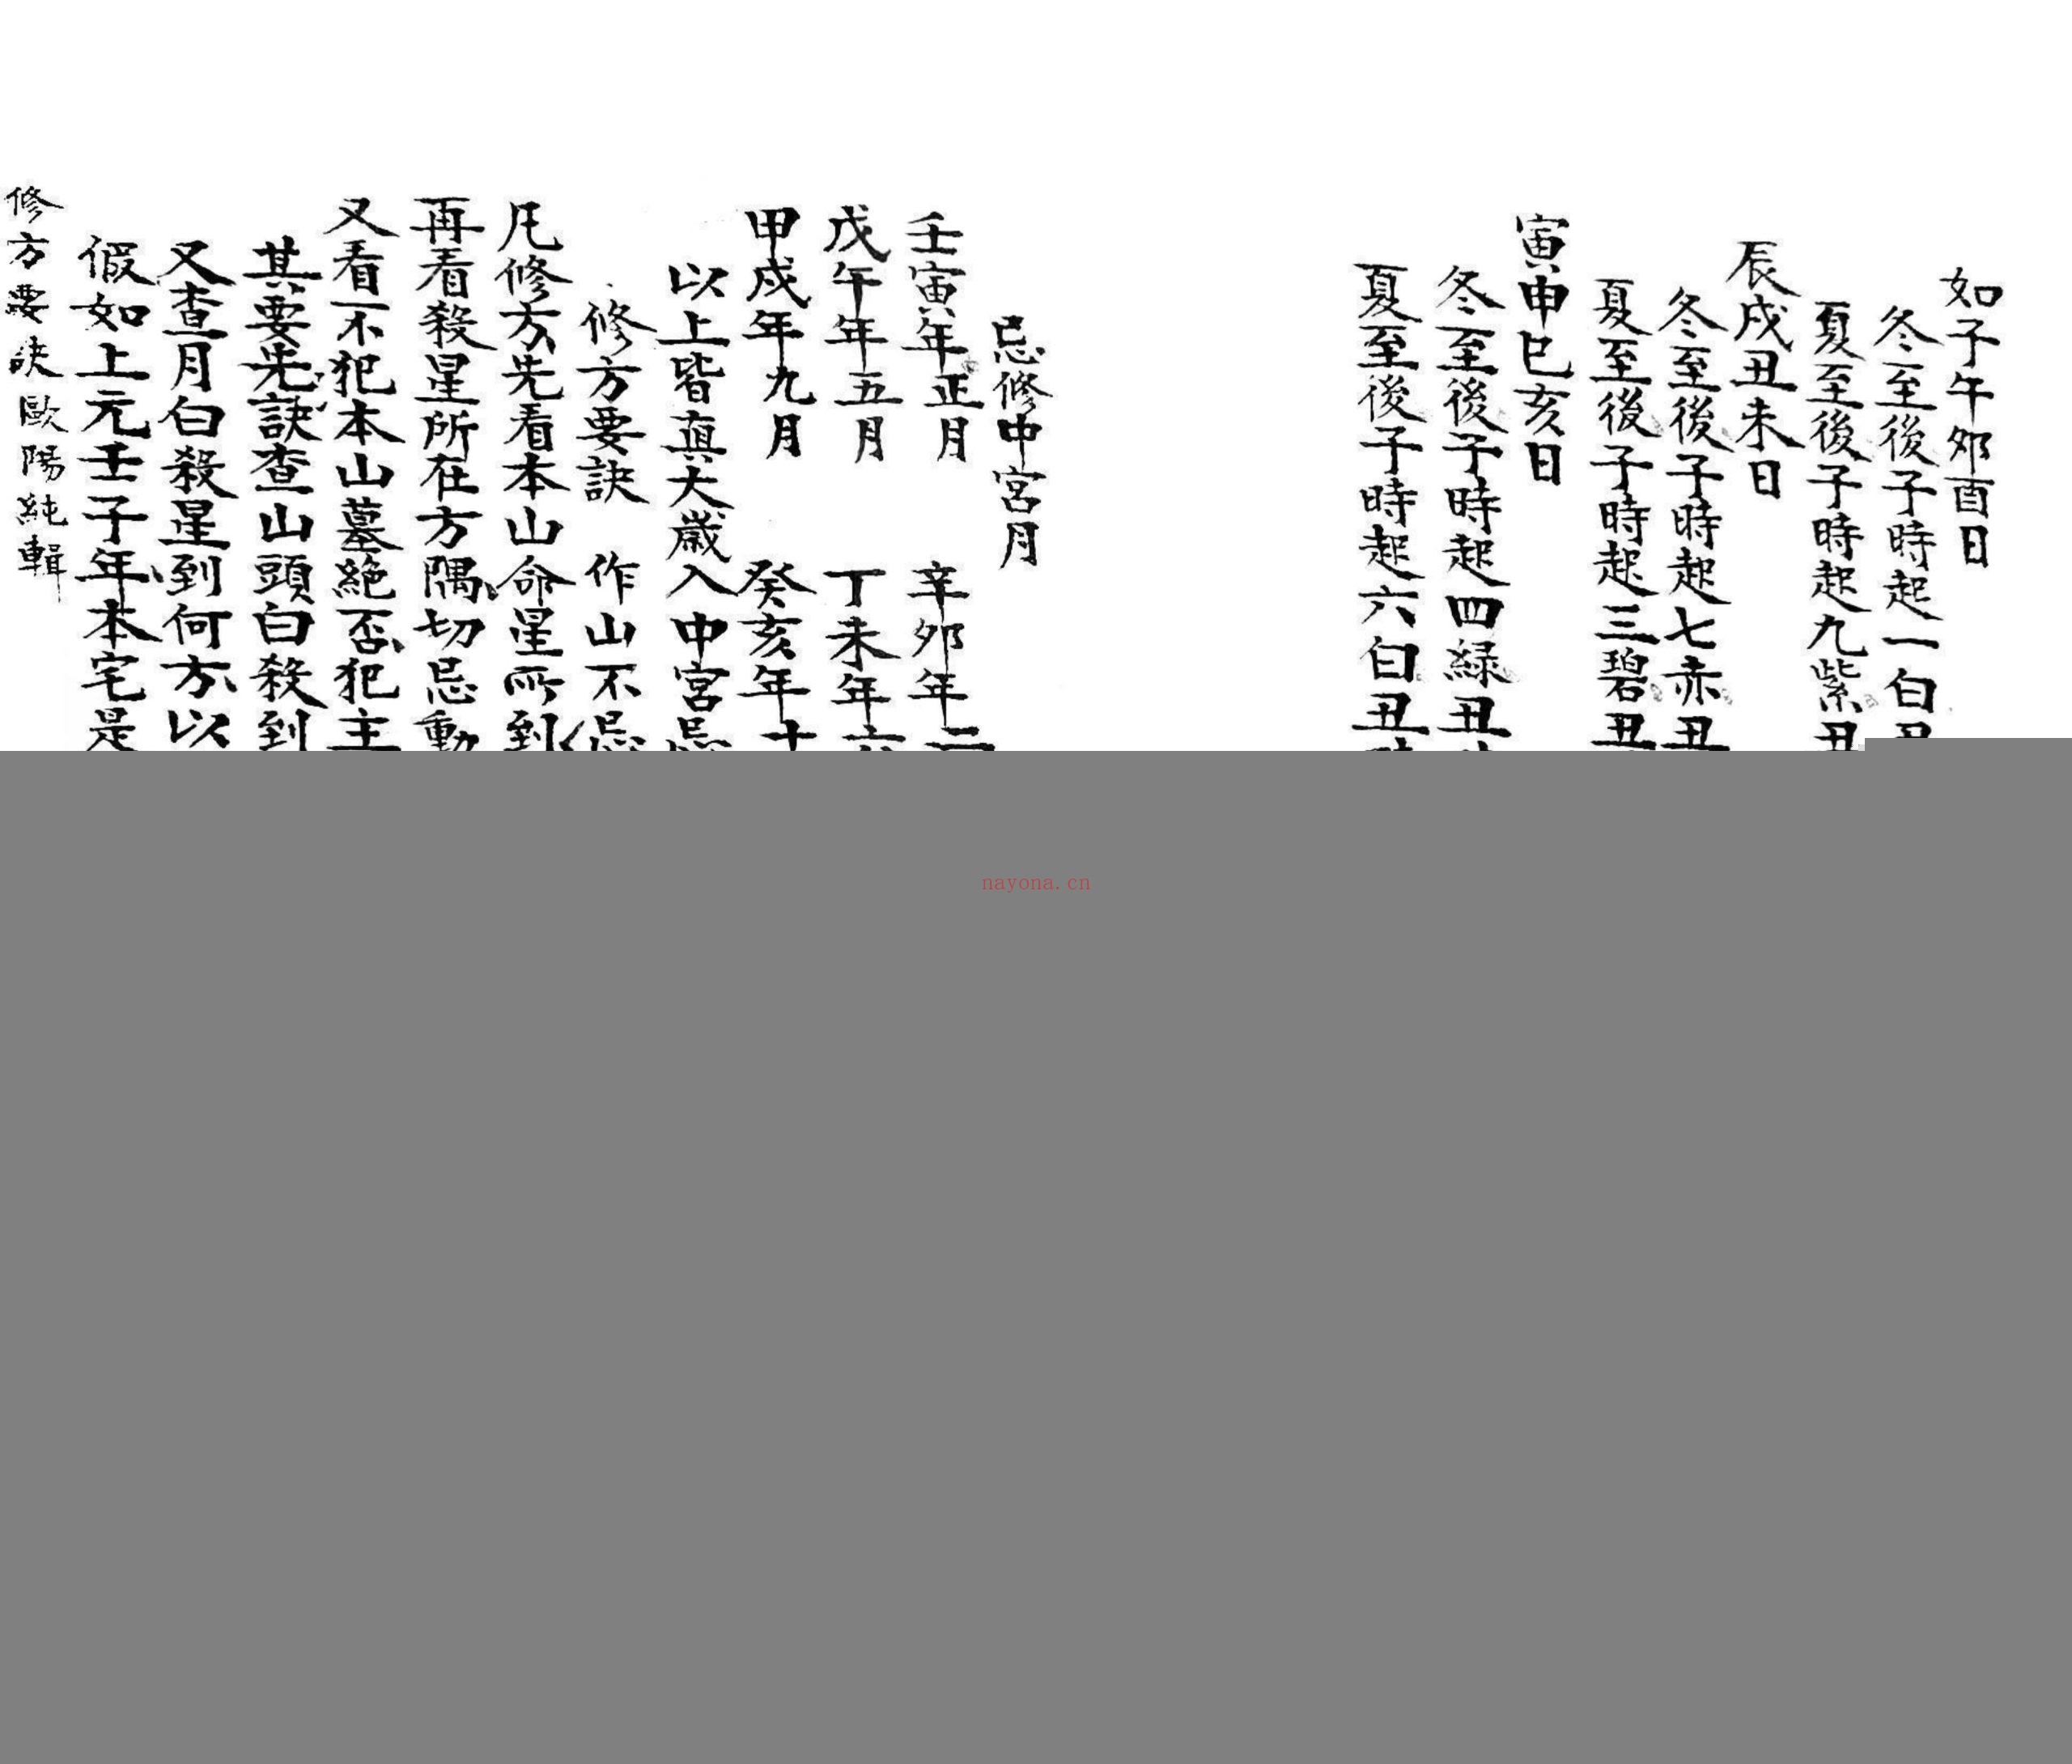 如子午卯酉日
冬至後子時起一白丑
夏至後子時起九紫丑
辰戌丑未日
冬至後子時起七赤丑
夏至後子時起三碧丑
寅申巳亥日
冬至後子時起四緑丑
夏至後子時起六白丑
忌修中宮月
壬寅年正月 辛卯年二
戊午年五月 丁未年六
甲戌年九月 癸亥年十
以上皆真太歲入中宮忌
修方要訣 作山不忌
凡修方先看本山命星所到
再看殺星所在方隅切忌動
又看不犯本山墓絶否犯主
其要先訣查山頭白殺到
又查月白殺星到何方以
假如上元壬子年本宅是
修方要訣歐陽純輯
nayona.cn